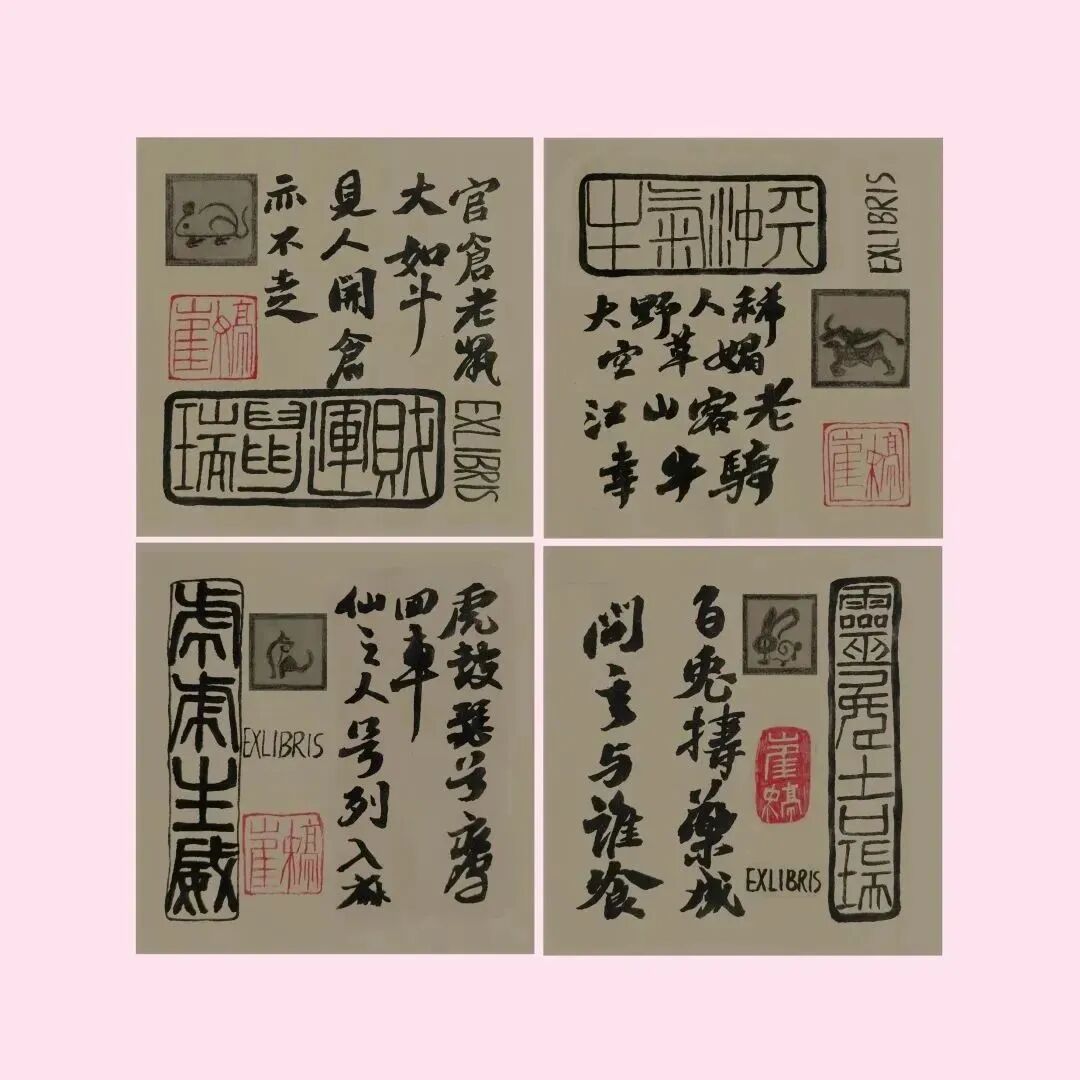 官倉老鼠
大如斗
見人開倉
亦不走
瑞鼠運財
EXLIBRIS
牛氣沖天
EXLIBRIS
大野人稀
空草媚
江山客老
幸牛騎
虎鼓瑟兮鸞
回車
仙之人兮列入麻
虎虎生威
EXLIBRIS
靈兔吉瑞
白兔擣藥成
問言与誰飡
EXLIBRIS